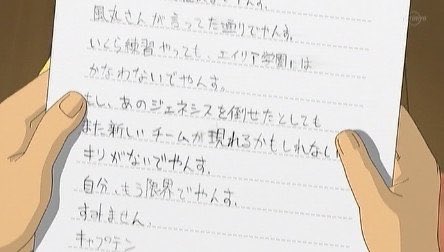 風丸さんが言ってた通りでやんす。
いくら練習やっても、エイリア学園には
かなわないでやんす。
もし、あのジェネシスを倒せたとしても
また新しいチームが現れるかもしれない
キリがないでやんす。
自分、もう限界でやんす。
すみません。
キャプテン